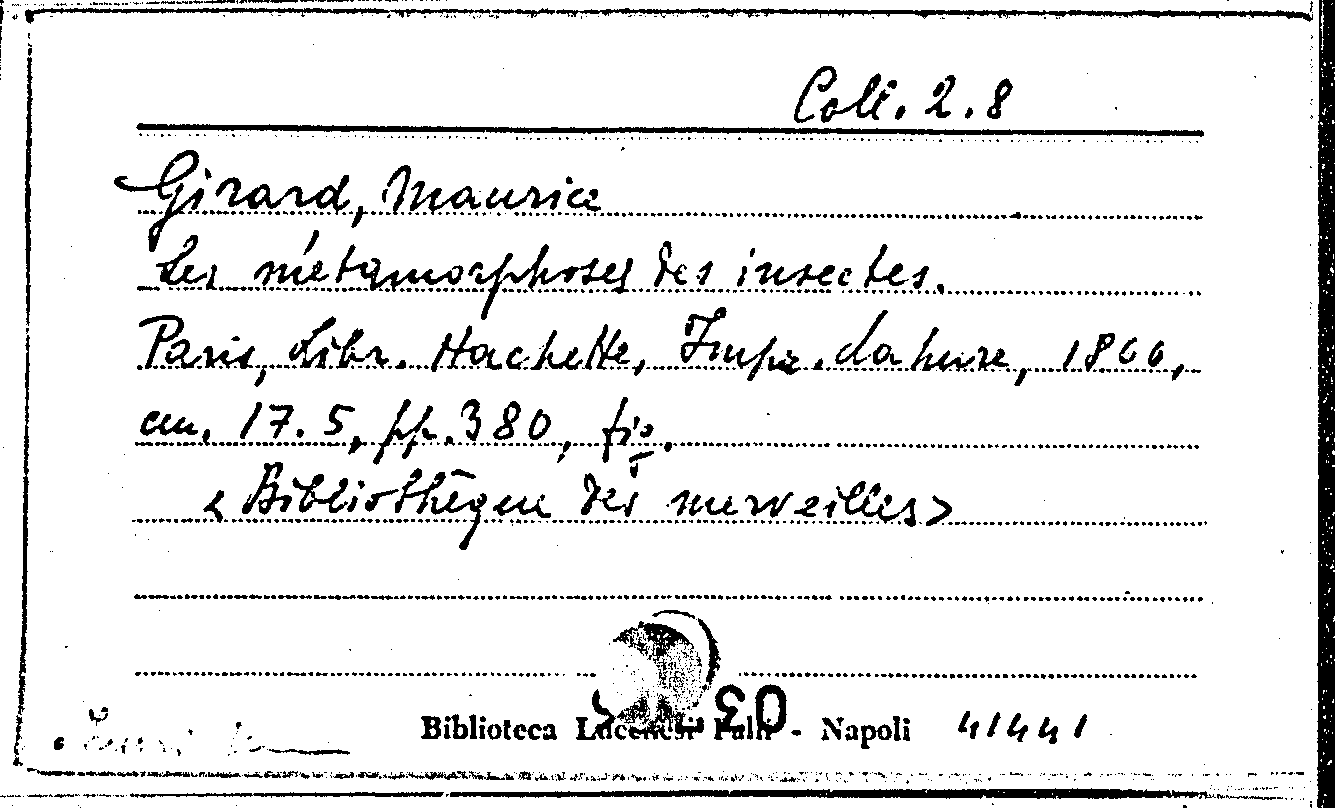 Coll. 2.8
Girard, Maurice
Les métamorphoses des insectes.
Paris, Libr. Hachette, Impr. Lahure, 1866,
cm. 17.5, pp. 380, fig.
< Bibliothèque des merveilles >
30
Biblioteca Lucchesi Palli - Napoli 41441